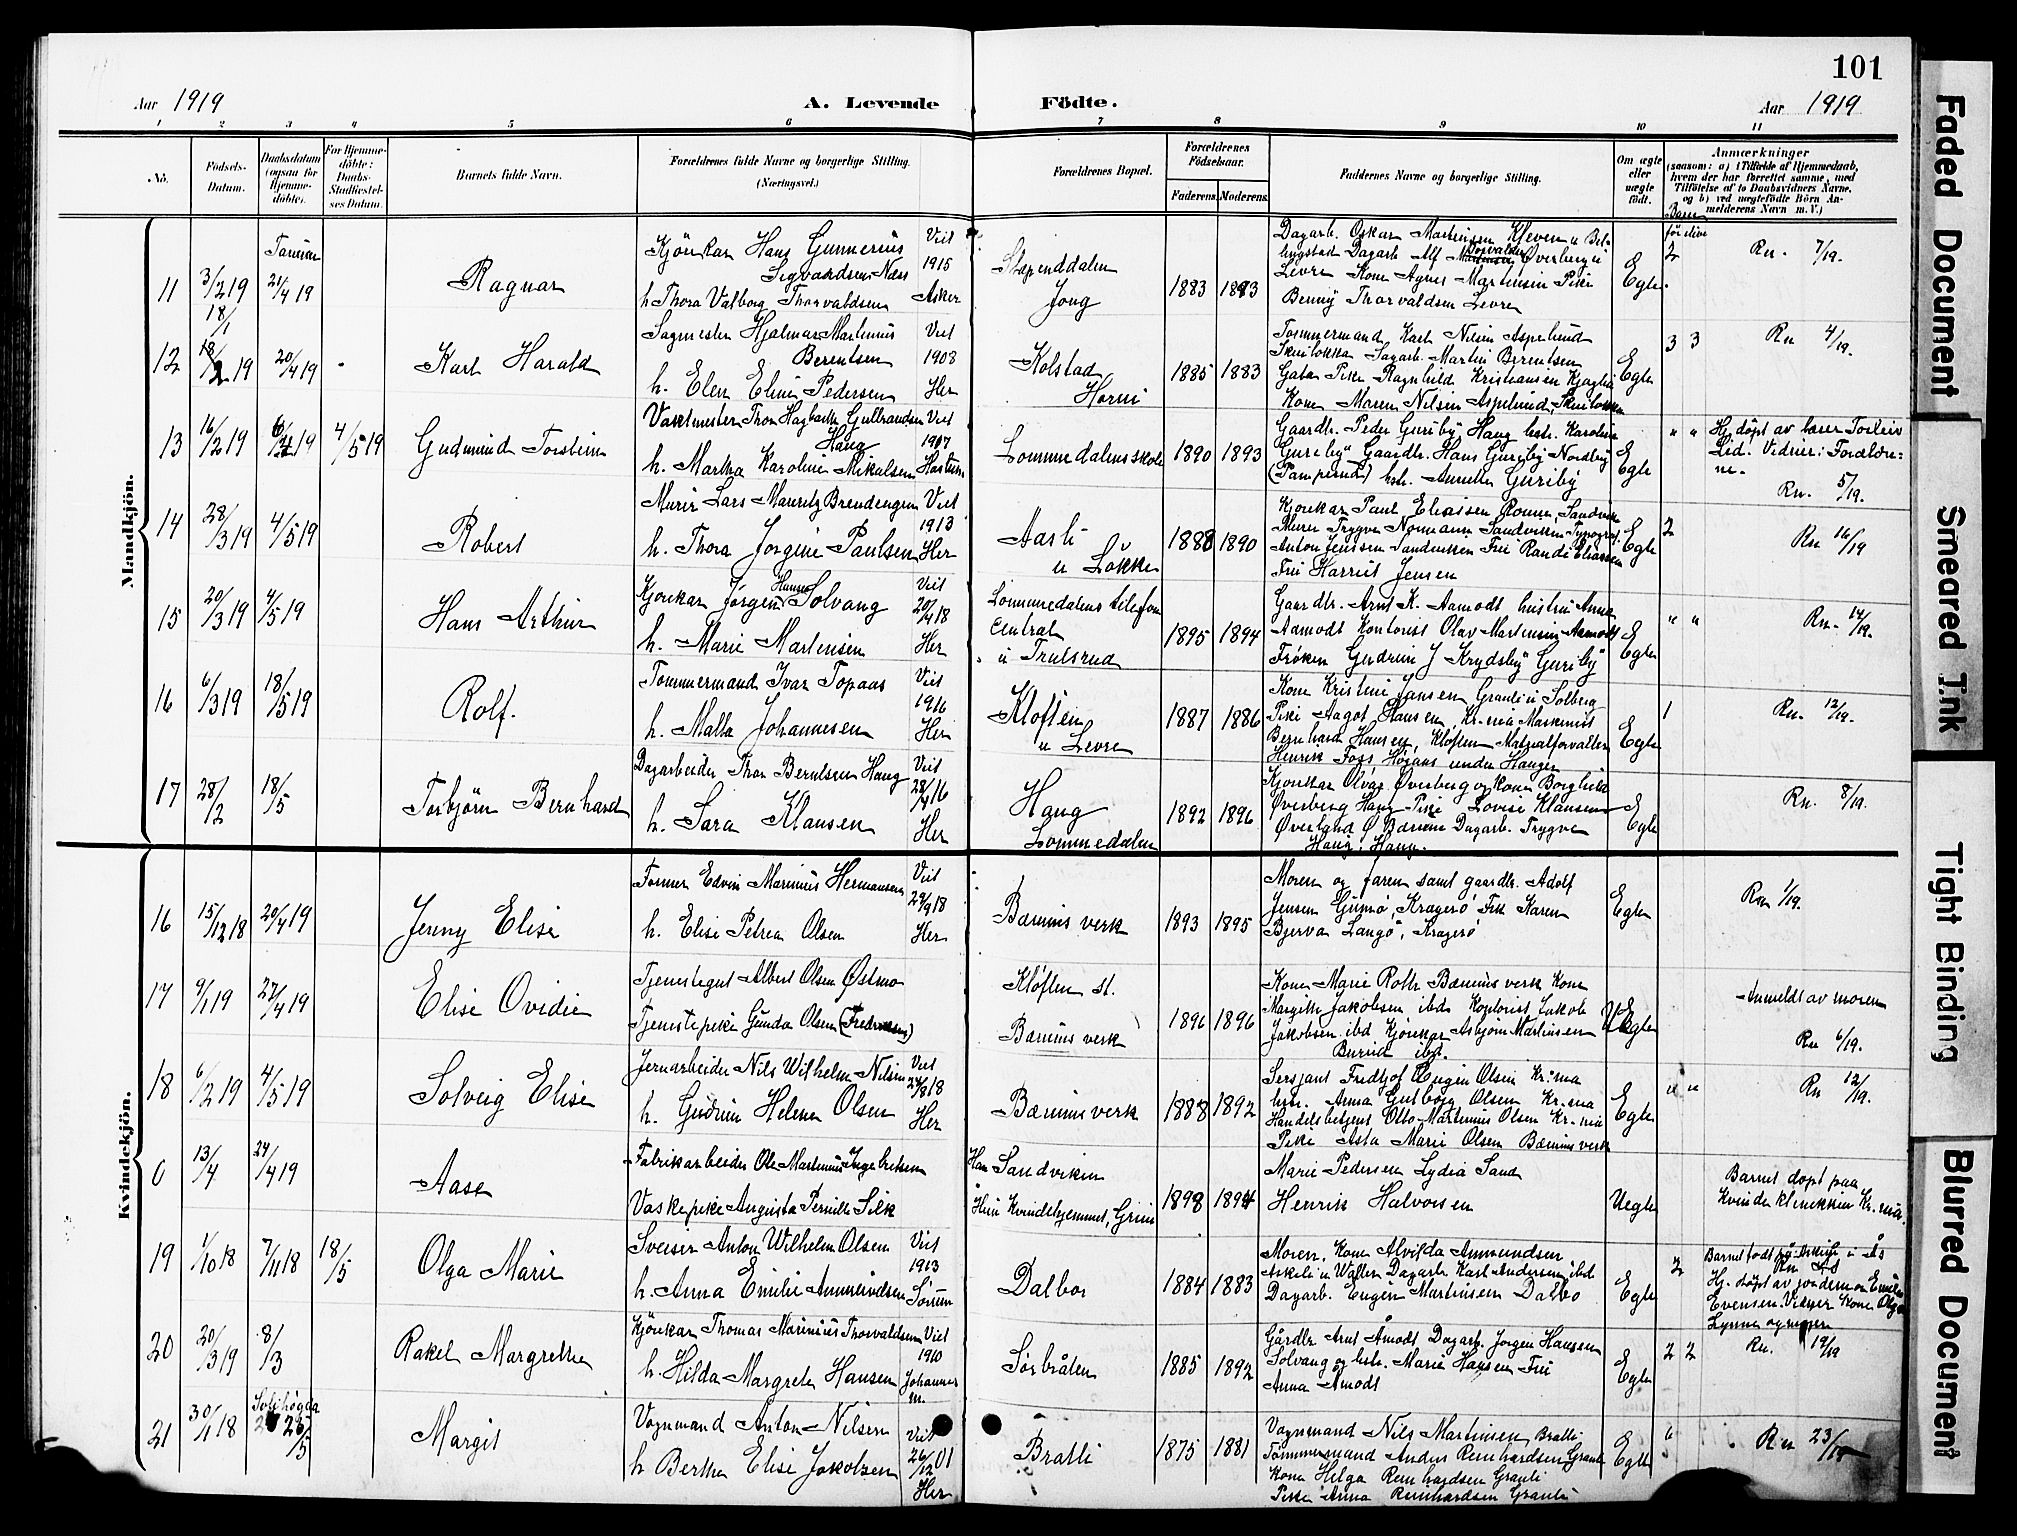 101
Aar 1919 A. Levende Födte. Aar 1919
1 2 3 4 5 6 7 8 9 10 11
No.
Födsels-
Datum.
Daabsdatum
(ogsaa for
Hjemme-
döbte).
For Hjemme-
döbte:
Daabs-
Stadfæstel-
ses Datum.
Barnets fulde Navn.
Forældrenes fulde Navne og borgerlige Stilling.
(Næringsvei.)
Forældrenes Bopæl.
Forældrenes
Födselsaar.
Faderens. Moderens.
Faddernes Navne og borgerlige Stilling.
Om ægte
eller
uægte
födt.
Anmærkninger
(saasom: a) i Tilfælde af Hjemmedaab,
hvem der har forrettet samme, med
Tilföielse af to Daabsvidners Navne,
og b) ved uægtefödte Börn An-
melderens Navn m. V.)
Mandkjön.
11 3/2 19 Tanum 21/4 19
Ragnar
Kjörekar Hans Gunnerius
Sigvardsen Næss
h. Thora Valborg Thorvaldsen
Viet
1915
Asker
Stependdalen
Jong
1883 1893
Dagarb. Oskar Martinsen Kleven u Bil-
lingstad Dagarb. Alf Torvaldsen Øverberg u
Levre Kone Agnes Martinsen Pike
Benny Thorvaldsen Levre
Egte
2
Rn. 7/19.
12 18/1 18/2 19 20/4 19 -
Karl Harald
Sagmester Hjalmar Martinius
Berentsen
h. Elen Eline Pedersen
Viet
1908
Her
Kolstad
Horni
1885 1883
Tommermand Karl Nilsen Aspelund
Skuilokka Sagarb. Martin Berentsen
Gata Pike Ragnhild Kristiansen Kjaglia
Kone Maren Nilsen Aspelund, Skuilokka
Egte
3 3
Rn 4/19.
13 16/2 19 6/4 19 4/5 19
Gudmund Torstein
Vaktmester Thor Hagbarth Gulbrandsen
Haug
h. Martha Karoline Mikalsen
Viet
1907
Lommedalens skole
1890 1893
Gaardbr. Peder Guriby Haug hstr. Karoline
Guriby Gaardbr. Hans Guriby Nordby
(Pamperud) hstr. Anette Guriby
Egte
" "
Hj. döpt av lærer Torleiv
Lid. Vidner: Forældre-
ne.
Rn. 5/19.
14 28/3 19 4/5 19
Robert
Murer Lars Mauritz Brendengen
h. Thora Jorgine Paulsen
Viet
1913
Her
Aasli
u Lökke
1888 1890
Kjorekar Paul Eliasen Roma, Sandvika
Murer Trygve Normann Sandviken Typograf
Anton Jenssen Sandviken Frk Randi Eliassen
Fru Harriet Jensen
Egte
2
Rn 16/19
15 20/3 19 4/5 19
Hans Arthur
Kjorekar Jörgen Hansen Solvang
h. Marie Martinsen
Viet
20/4 18
Her
Lommedalens telefon
Central
u Trulsrud
1895 1894
Gaardbr. Arnt K. Aamodt hustru Anna
Aamodt Kontorist Olav Martinsen Aamodt
Frøken Gudrun J Krydsby Guriby
Egte
" "
Rn. 14/19.
16 6/3 19 18/5 19
Rolf.
Tommermand Ivar Topaas
h. Malla Johannesen
Viet
1916
Her
Kloften
u Levre
1887 1886
Kone Kristine Jansen Granli u Solberg
Pike Aagot Hansen, Kr.nia Maskinist
Bernhard Hansen, Kloften Matrialforvalter
Henrik Foss, Högaas under Hauger
Egte
1
Rn. 12/19.
17 28/12 18/5
Torbjörn Bernhard
Dagarbeider Thor Berntsen Haug
h. Sara Klausen
Viet
28/4 16
Her
Haug
Lommedalen
1892 1896
Kjorekar Olvar Øverberg og kone Borghild
Øverberg Haug Pike Lovise Klausen
Øverland Ø Bærum Dagarb. Trygve
Haug, Haug.
Egte
Rn. 8/19.
Kvindekjön.
16 15/12 18 20/4 19
Jenny Elise
Former Edvin Marinius Hermansen
h. Elise Petrea Olsen
Viet
29/9 18
Her
Bærums verk
1893 1895
Moren og faren samt gaardbr. Adolf
Jensen Gumö, Kragerö Frk Karen
Bjerva Langö, Kragerö
Egte
Rn 1/19.
17 9/1 19 27/4 19
Elise Ovidie
Tjenestegut Albert Olsen Østmo
Tjenestepike Gunda Olsen (Fredriksen)
Kløften st.
Bærums verk
1896 1896
Kone Marie Roth Bærums verk Kone
Margith Jakobsen ibd Kontorist Jakob
Jakobsen ibd Kjörekar Asbjorn Martinsen
Burud ibd.
Uegte
Anmeldt av moren
Rn 6/19.
18 6/2 19 4/5 19
Solveig Elise
Jernarbeider Nils Wilhelm Nilsen
h. Gudrun Helene Olsen
Viet
24/8 18
Her
Bærums verk
1888 1892
Sersjant Fridtjof Eugen Olsen Kr.nia
hstr. Anna Gutborg Olsen Kr.nia
Handelsbetjent Otto Martinius Olsen Kr.nia
Pike Asta Marie Olsen Bærums verk
Egte
" "
Rn 12/19.
0 13/4 24/4 19
Aase
Fabrikarbeider Ole Martinius Ingebretsen
Vaskepike Augusta Pernille Silk
Han Sandviken
Hun Kvindehjemmet, Grini
1898 1894
Marie Pedersen Lydia Sand
Henrik Halvorsen
Uegte
Barnet döpt paa
Kvindeklinikken Kr.nia.
19 1/10 18 7/11 18 18/5
Olga Marie
Sveiser Anton Wilhelm Olsen
h. Anna Emilie Amundsen
Viet
1913
Sörum
Dalbo
1884 1883
Moren, Kone Alvilda Amundsen
Askeli u Wallen Dagarb. Karl Andersen ibd
Dagarb. Eugen Martinsen Dalbo
Egte
2
Barnet födt på Askeli u Ås
Hj. döpt av jordemor Emilie
Evensen. Vidner Kone Olga
20 20/3 19 8/3
Rakel Margrethe
Kjörekar Thomas Marinius Thorvaldsen
h. Hilda Margrete Hansen
Viet
1910
Johannes
m.
Sörbråten
1885 1892
Gårdbr Arnt Åmodt Dagarb. Jorgen Hansen
Solvang og hstr. Marie Hansen Fru
Anna Åmodt
Egte
2 2
Rn. 19/19
21 30/1 18 Solihögda 25/5
Margit
Vognmand Anton Nilsen
h Bertha Elise Jakobsen
Viet
26/12 01
Her
Bratli
1875 1881
Vognmand Nils Martinsen Bratli
Tommermand Anders Reinhardsen Granli
Kone Helga Reinhardsen Granli
Pike Anna Reinhardsen Granli
Egte
Rn 23/19
Faded Document
Smeared Ink
Tight Binding
Blurred Document